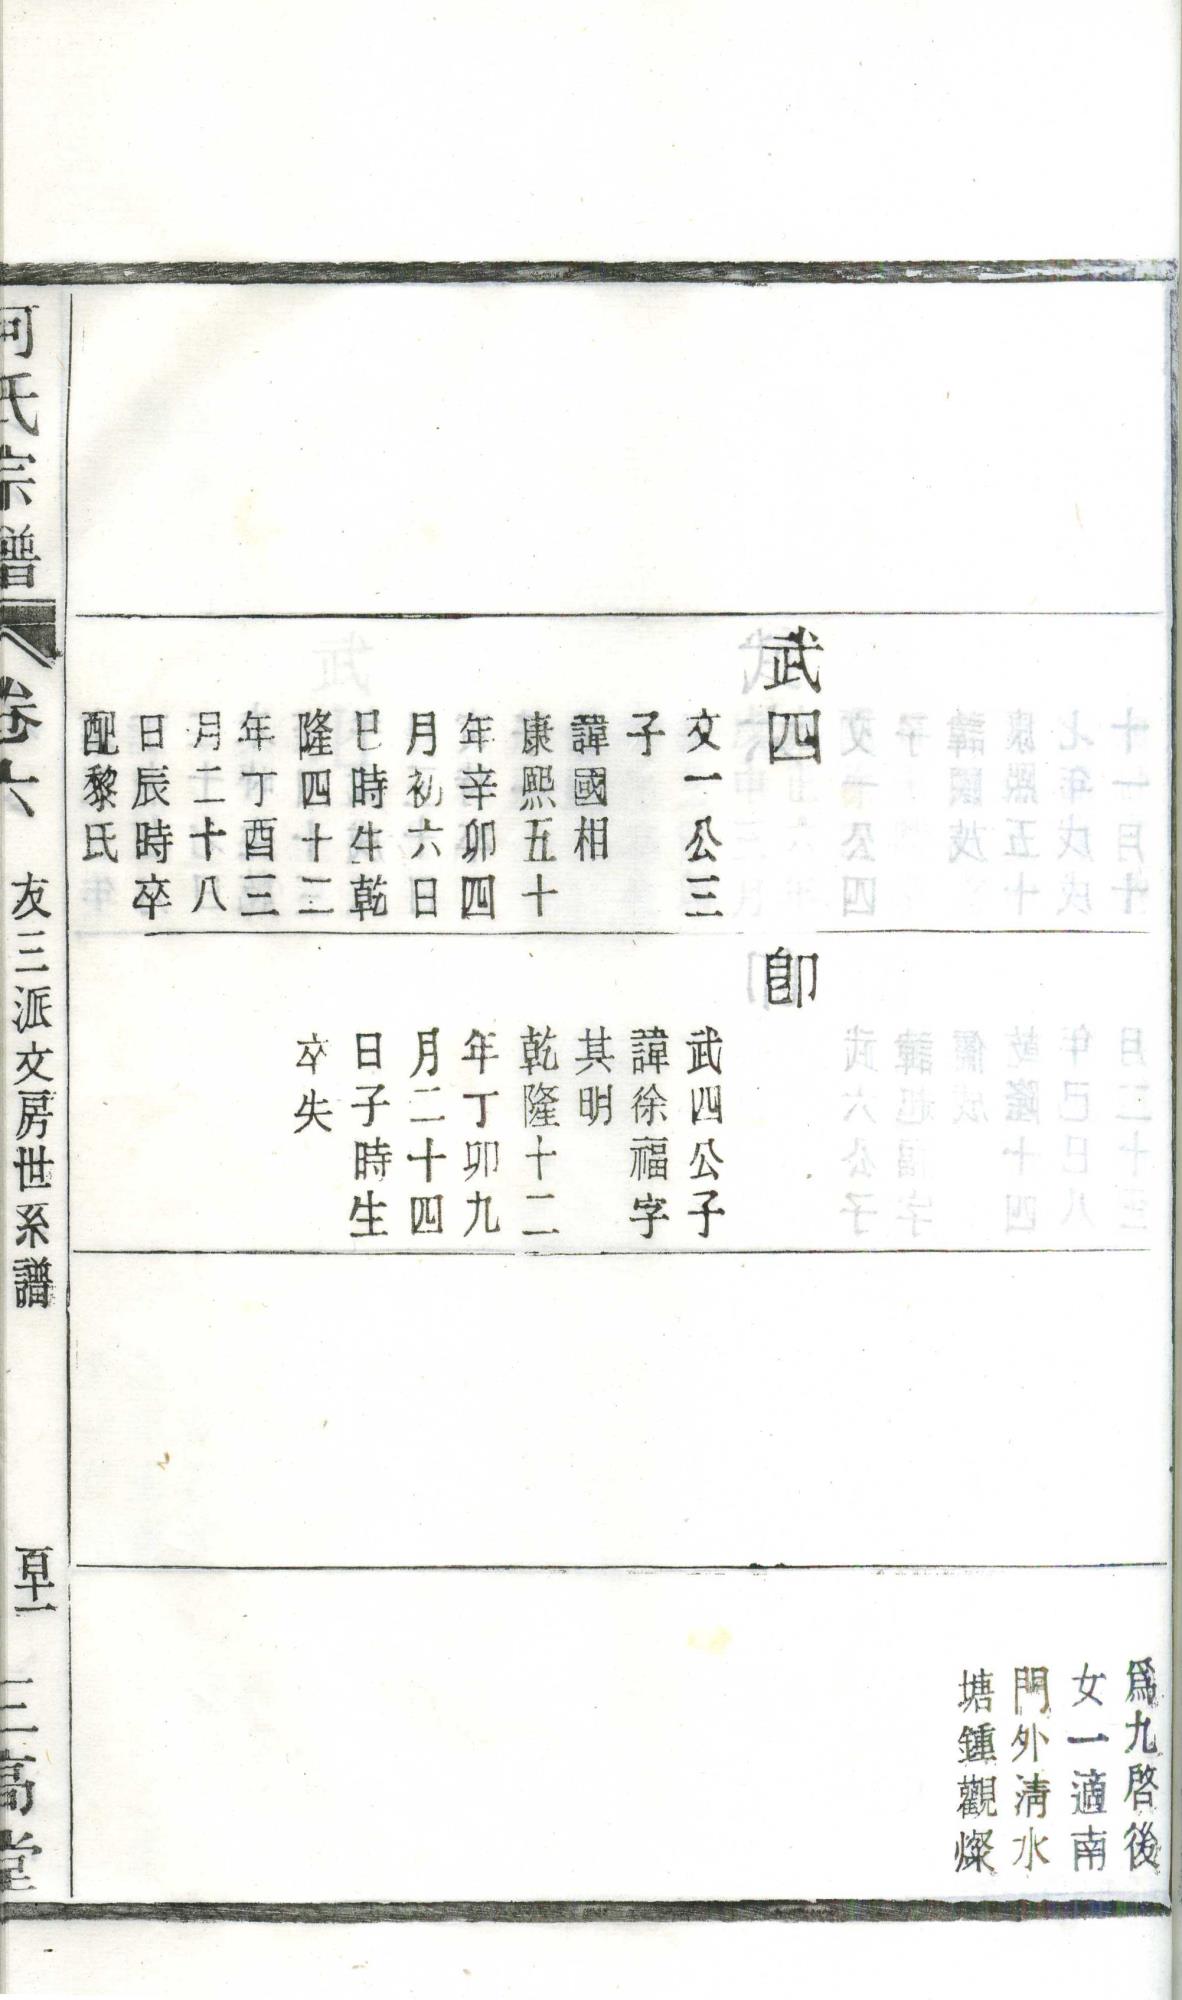 武四
文一公三
子
諱國相
康熙五十
年辛卯四
月初六日
巳時生乾
隆四十二
年丁酉三
月二十八
日辰時卒
配黎氏
卽
武四公子
諱徐福字
其明
乾隆十二
年丁卯九
月二十四
日子時生
卒失
爲九啓後
女一適南
門外淸水
塘鍾觀燦
何氏宗譜
卷六
友三派文房世系譜
三高堂